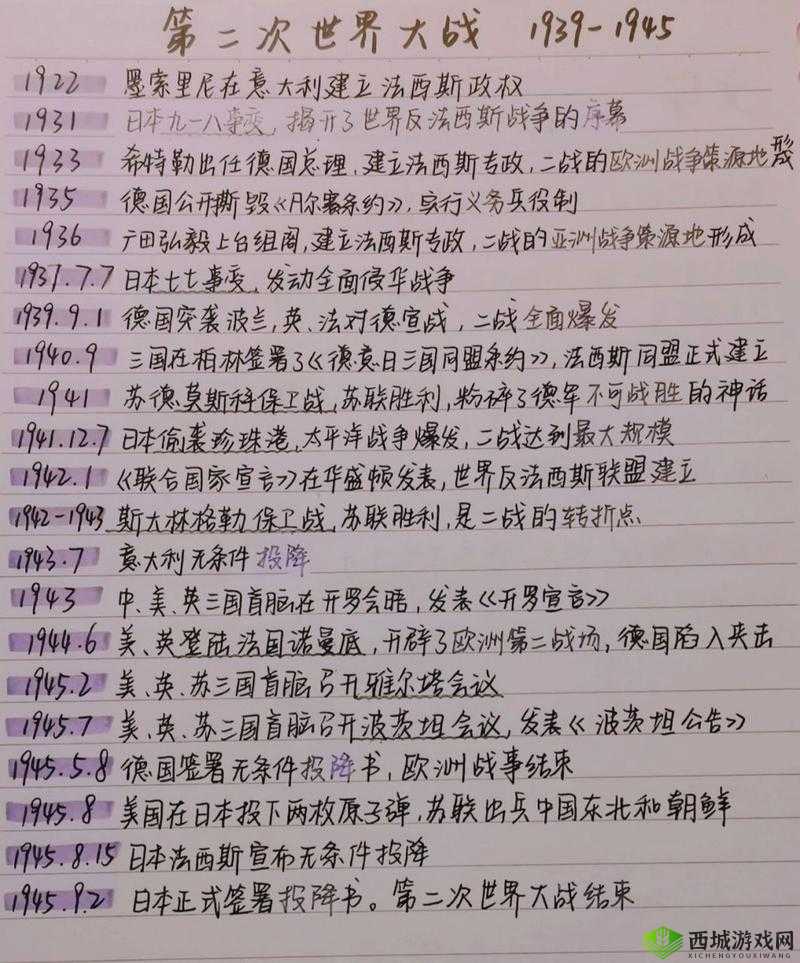 第二次世界大战 1939-1945
1922 墨索里尼在意大利建立法西斯政权
1931 日本九一八事变，揭开了世界反法西斯战争的序幕
1933 希特勒出任德国总理，建立法西斯专政，二战的欧洲战争策源地形成
1935 德国公开撕毁《凡尔赛条约》，实行义务兵役制
1936 广田弘毅上台组阁，建立法西斯专政，二战的亚洲战争策源地形成
1937.7.7 日本七七事变，发动全面侵华战争
1939.9.1 德国突袭波兰，英、法对德宣战，二战全面爆发
1940.9 三国在柏林签署了《德意日三国同盟条约》，法西斯同盟正式建立
1941 苏德莫斯科保卫战，苏联胜利，粉碎了德军不可战胜的神话
1941.12.7 日本偷袭珍珠港，太平洋战争爆发，二战达到最大规模
1942.1 《联合国家宣言》在华盛顿发表，世界反法西斯联盟建立
1942-1943 斯大林格勒保卫战，苏联胜利，是二战的转折点
1943.7 意大利无条件投降
1943 中、美、英三国首脑在开罗会晤，发表《开罗宣言》
1944.6 美、英登陆法国诺曼底，开辟了欧洲第二战场，德国陷入夹击
1945.2 美、英、苏三国首脑召开雅尔塔会议
1945.7 美、英、苏三国首脑召开波茨坦会议，发表《波茨坦公告》
1945.5.8 德国签署无条件投降书，欧洲战事结束
1945.8 美国在日本投下两枚原子弹，苏联出兵中国东北和朝鲜
1945.8.15 日本法西斯宣布无条件投降
1945.9.2 日本正式签署投降书。第二次世界大战结束
西城游戏网
XICHENGYOUXIWANG